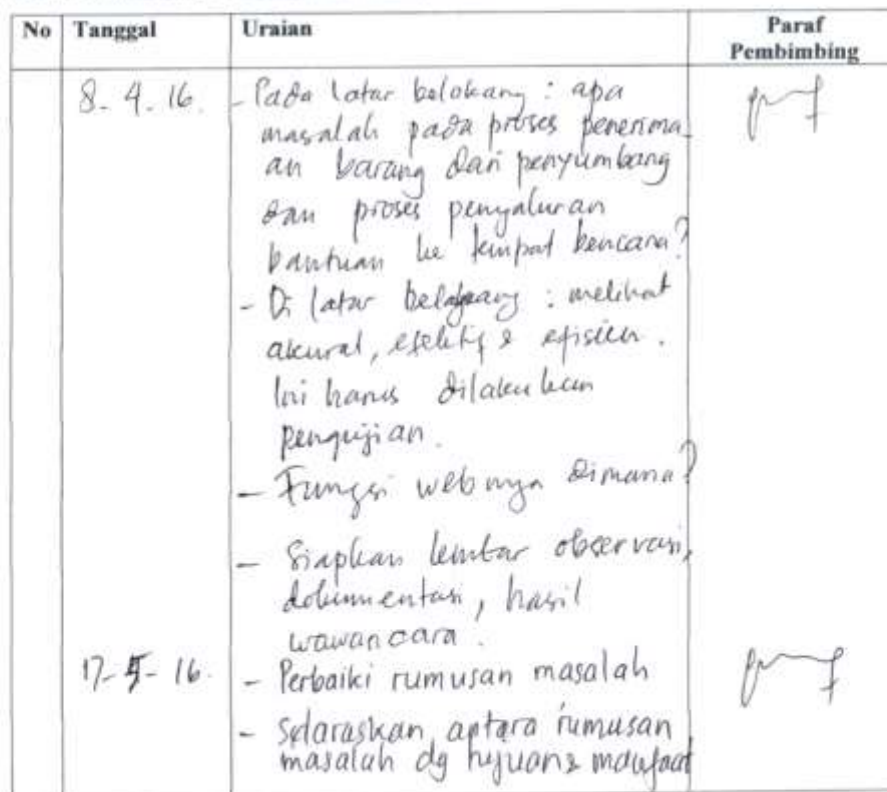 No Tanggal Uraian Paraf Pembimbing
8-4-16. - Pada latar belakang : apa
masalah pada proses penerima
an barang dari penyumbang
dan proses penyaluran
bantuan ke tempat bencana?
- Di latar belakang : melihat
akurat, efektif & efisien.
Ini harus dilakukan
pengujian.
- Fungsi webnya dimana?
- Siapkan lembar observasi,
dokumentasi, hasil
wawancara.
17-5-16. - Perbaiki rumusan masalah
- Selaraskan antara rumusan
masalah dg tujuan & manfaat